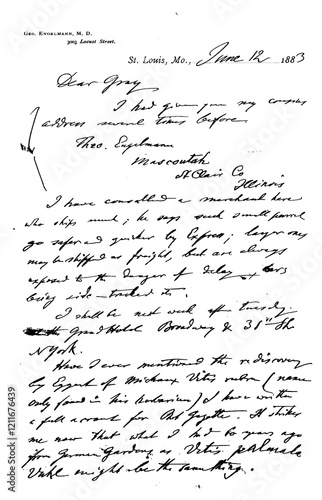 GEO. ENGELMANN, M. D.
3003 Locust Street.
St. Louis, Mo., June 12 1883
Dear Gray
I had given you my cousins
address several times before
Theo. Engelmann
Mascoutah
St Clair Co
Illinois
I have consulted a merchant here
who ships much; he says such small parcel
go safer and quicker by Express; larger ones
may be shipped as freight, but are always
exposed to the danger of delay
being side-tracked
I shall be next week after Tuesday
Grand Hotel Broadway & 31st Str
N York.
Have I ever mentioned the rediscovery
by Eggert of Michaux Vitis rubra (name
only found in his herbarium) I have written
a full account for Bot Gazette. It strikes
me now that what I had 60 years ago
from German Gardens as Vitis palmata
Vahl might be the same thing.